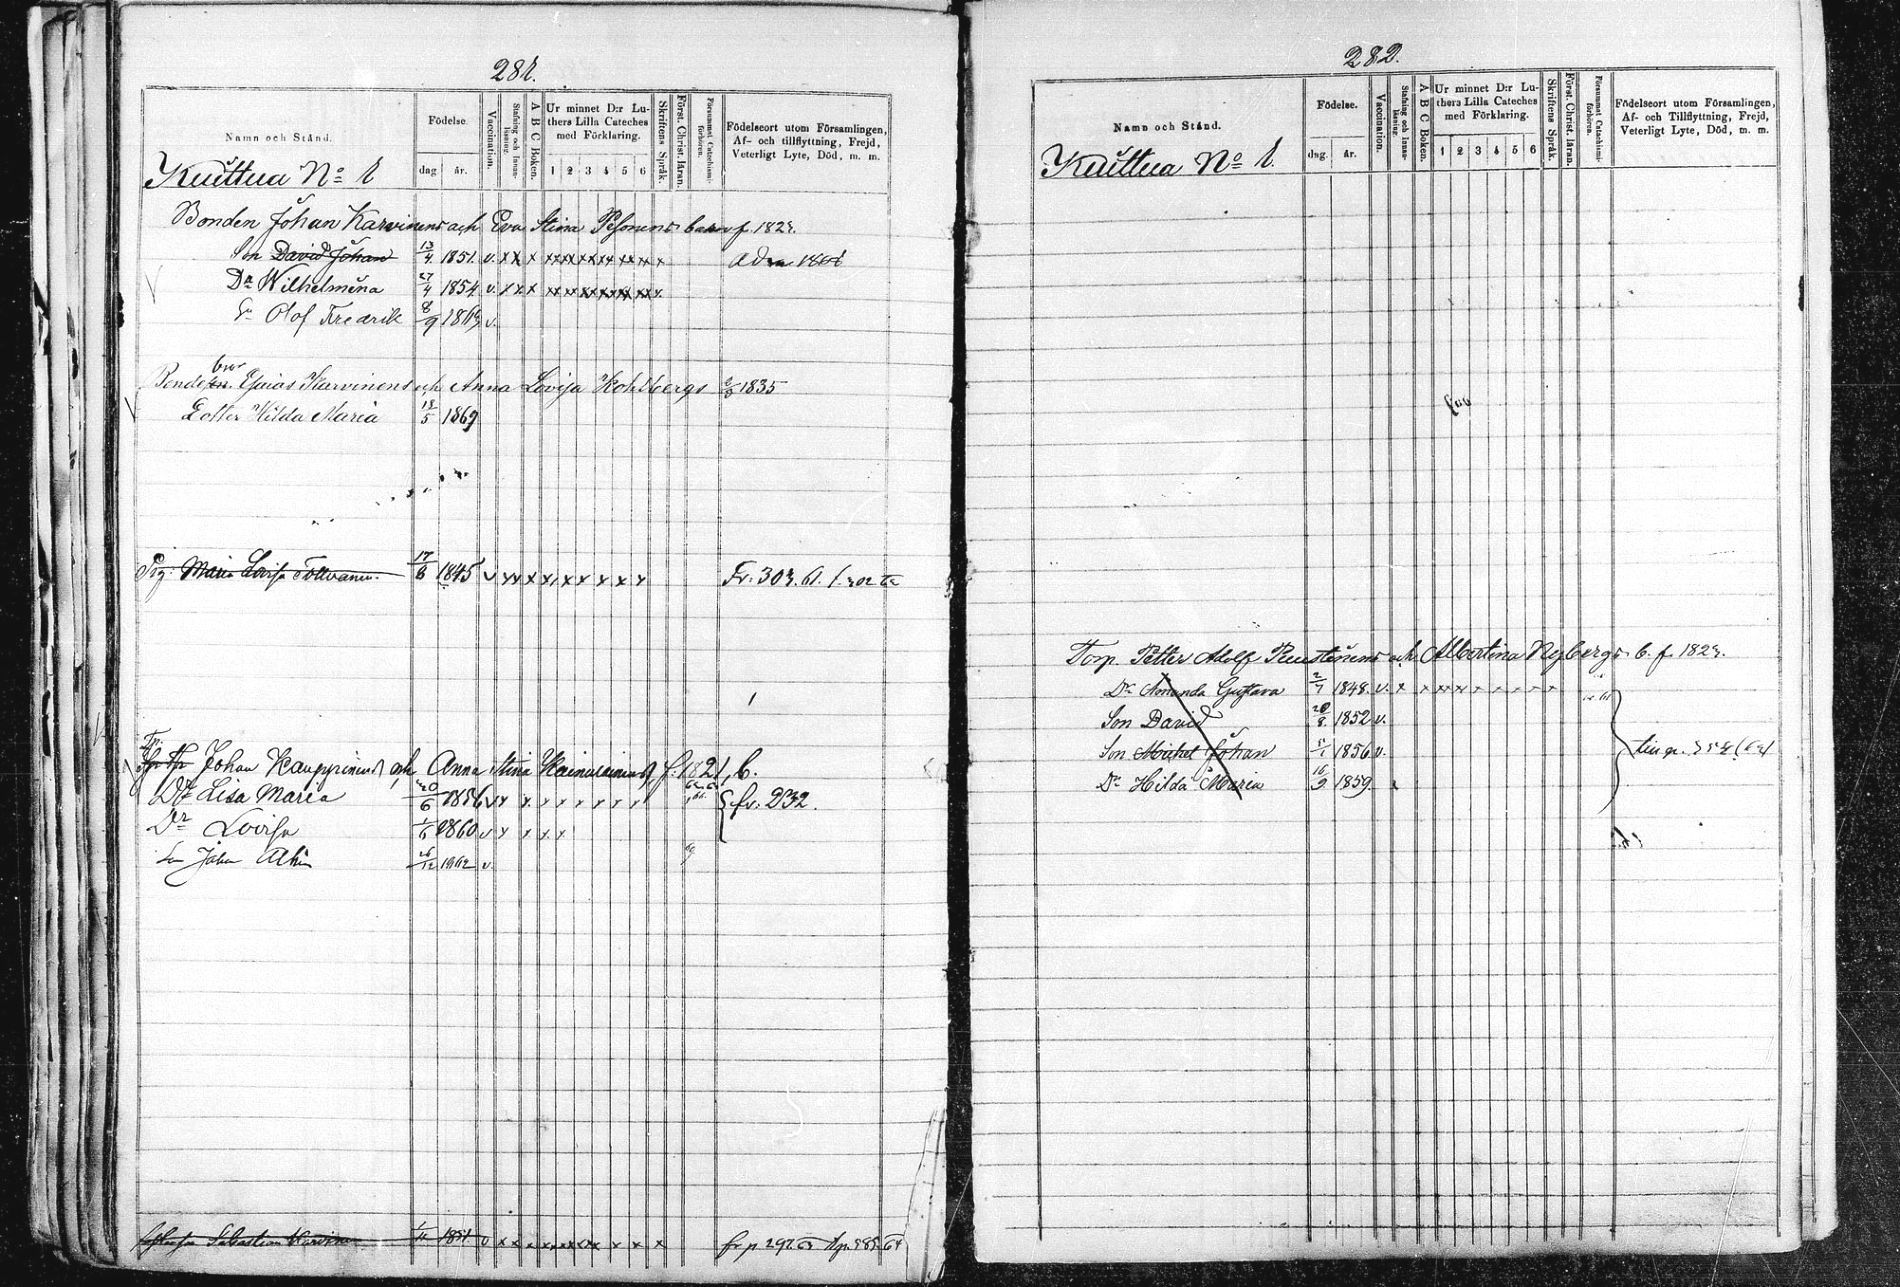 281.
Namn och Stånd.
Födelse.
dag
år.
Vaccination.
Stafning och Innanläsning.
A B C Boken.
Ur minnet D:r Luthers Lilla Cateches med Förklaring.
1 2 3 4 5 6
Skriftens Språk.
Först. Christ. läran.
Försummat Catechismiförhören.
Födelseort utom Församlingen, Af- och tillflyttning, Frejd, Veterligt Lyte, Död, m. m.
Kuittua No 1
Bonden Johan Karvinens och Eva Stina Pesonens barn f. 1823.
Son David Johan 13/4 1851 v. x x x xx xx xx xx xx xx x
Dr Wilhelmina 27/4 1854 v. x x x xx xx xx xx xx xx x
Sn Olof Fredrik 8/9 1863 v.
Bonde bror Karvinens och Anna Lovisa Kohlbergs 1835
Dotter Hilda Maria 18/5 1869
Pig. Maria Lovisa Tolvanen 17/6 1845 v Fr. 303. 61.
Johan Kauppinens och Anna Stina Kainulainens f. 1821, b.
Dr Lisa Maria 20/6 1856 v fr. 232.
Dr Lovisa 1/6 1860 v x x x x
Son Johan 26/12 1862 v.
Sebastian Karvinen 1/11 1851 v x x x fr p 292 63 585 64
282.
Namn och Stånd.
Födelse.
dag.
år.
Vaccination.
Stafning och Innanläsning
A B C Boken.
Ur minnet D:r Luthers Lilla Cateches med Förklaring.
1 2 3 4 5 6
Skriftens Språk.
Först. Christ. läran.
Försummat Catechismiförhören.
Födelseort utom Församlingen, Af- och Tillflyttning, Frejd, Veterligt Lyte, Död, m. m.
Kuittua No 1.
Torp. Petter Adolf Puustinens och Albertina Nybergs b. f. 1823.
Dr Amanda Gustava 2/7 1848. v. x
Son David 20/8 1852 v.
Son Michel Johan 5/1 1856 v.
Dr Hilda Maria 16/9 1859.